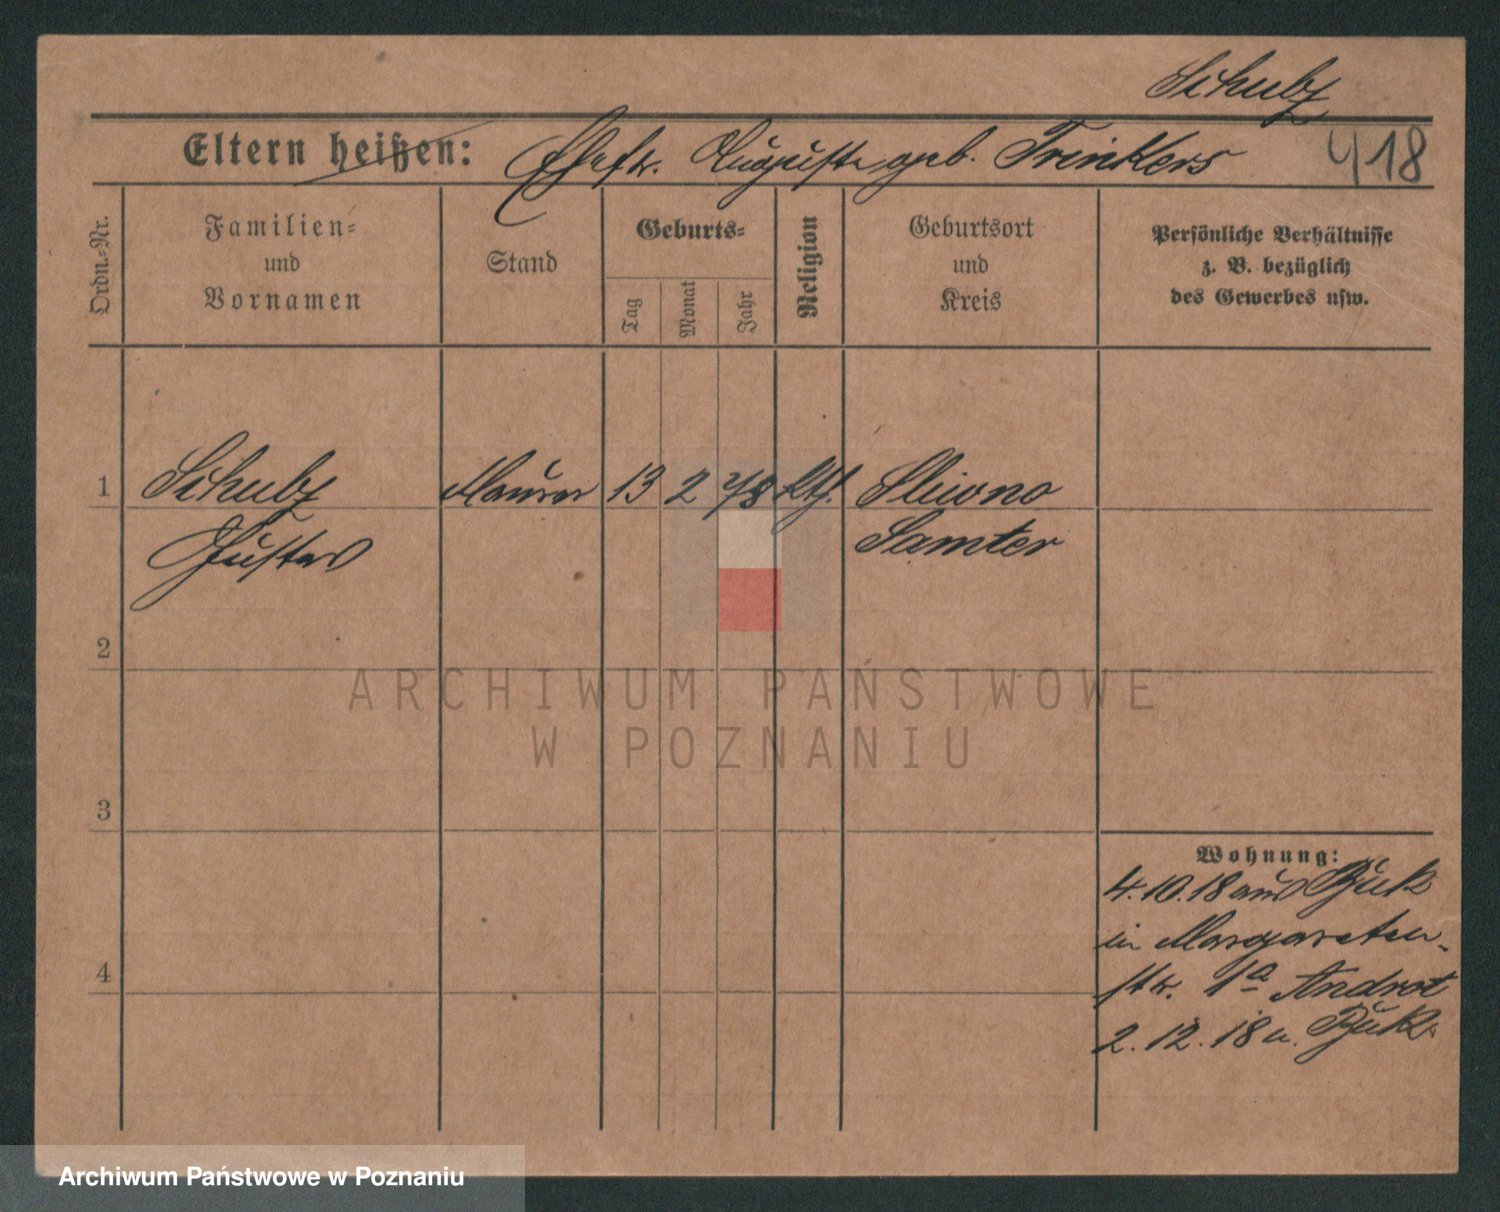 Schulz
Eltern heißen: Ehefr. Auguste geb. Trinkers
418
Ordn.-Nr.
Familien-
und
Vornamen
Stand
Geburts-
Tag
Monat
Jahr
Religion
Geburtsort
und
Kreis
Persönliche Verhältnisse
z. B. bezüglich
des Gewerbes usw.
1
Schulz Maurer 13 2 78 kth. Sliwno
Gustav Samter
2
3
4
Wohnung:
4.10.18 aus Buk
in Margareten-
str. 1a
2.12.18 n. Buk
ARCHIWUM PAŃSTWOWE
W POZNANIU
Archiwum Państwowe w Poznaniu